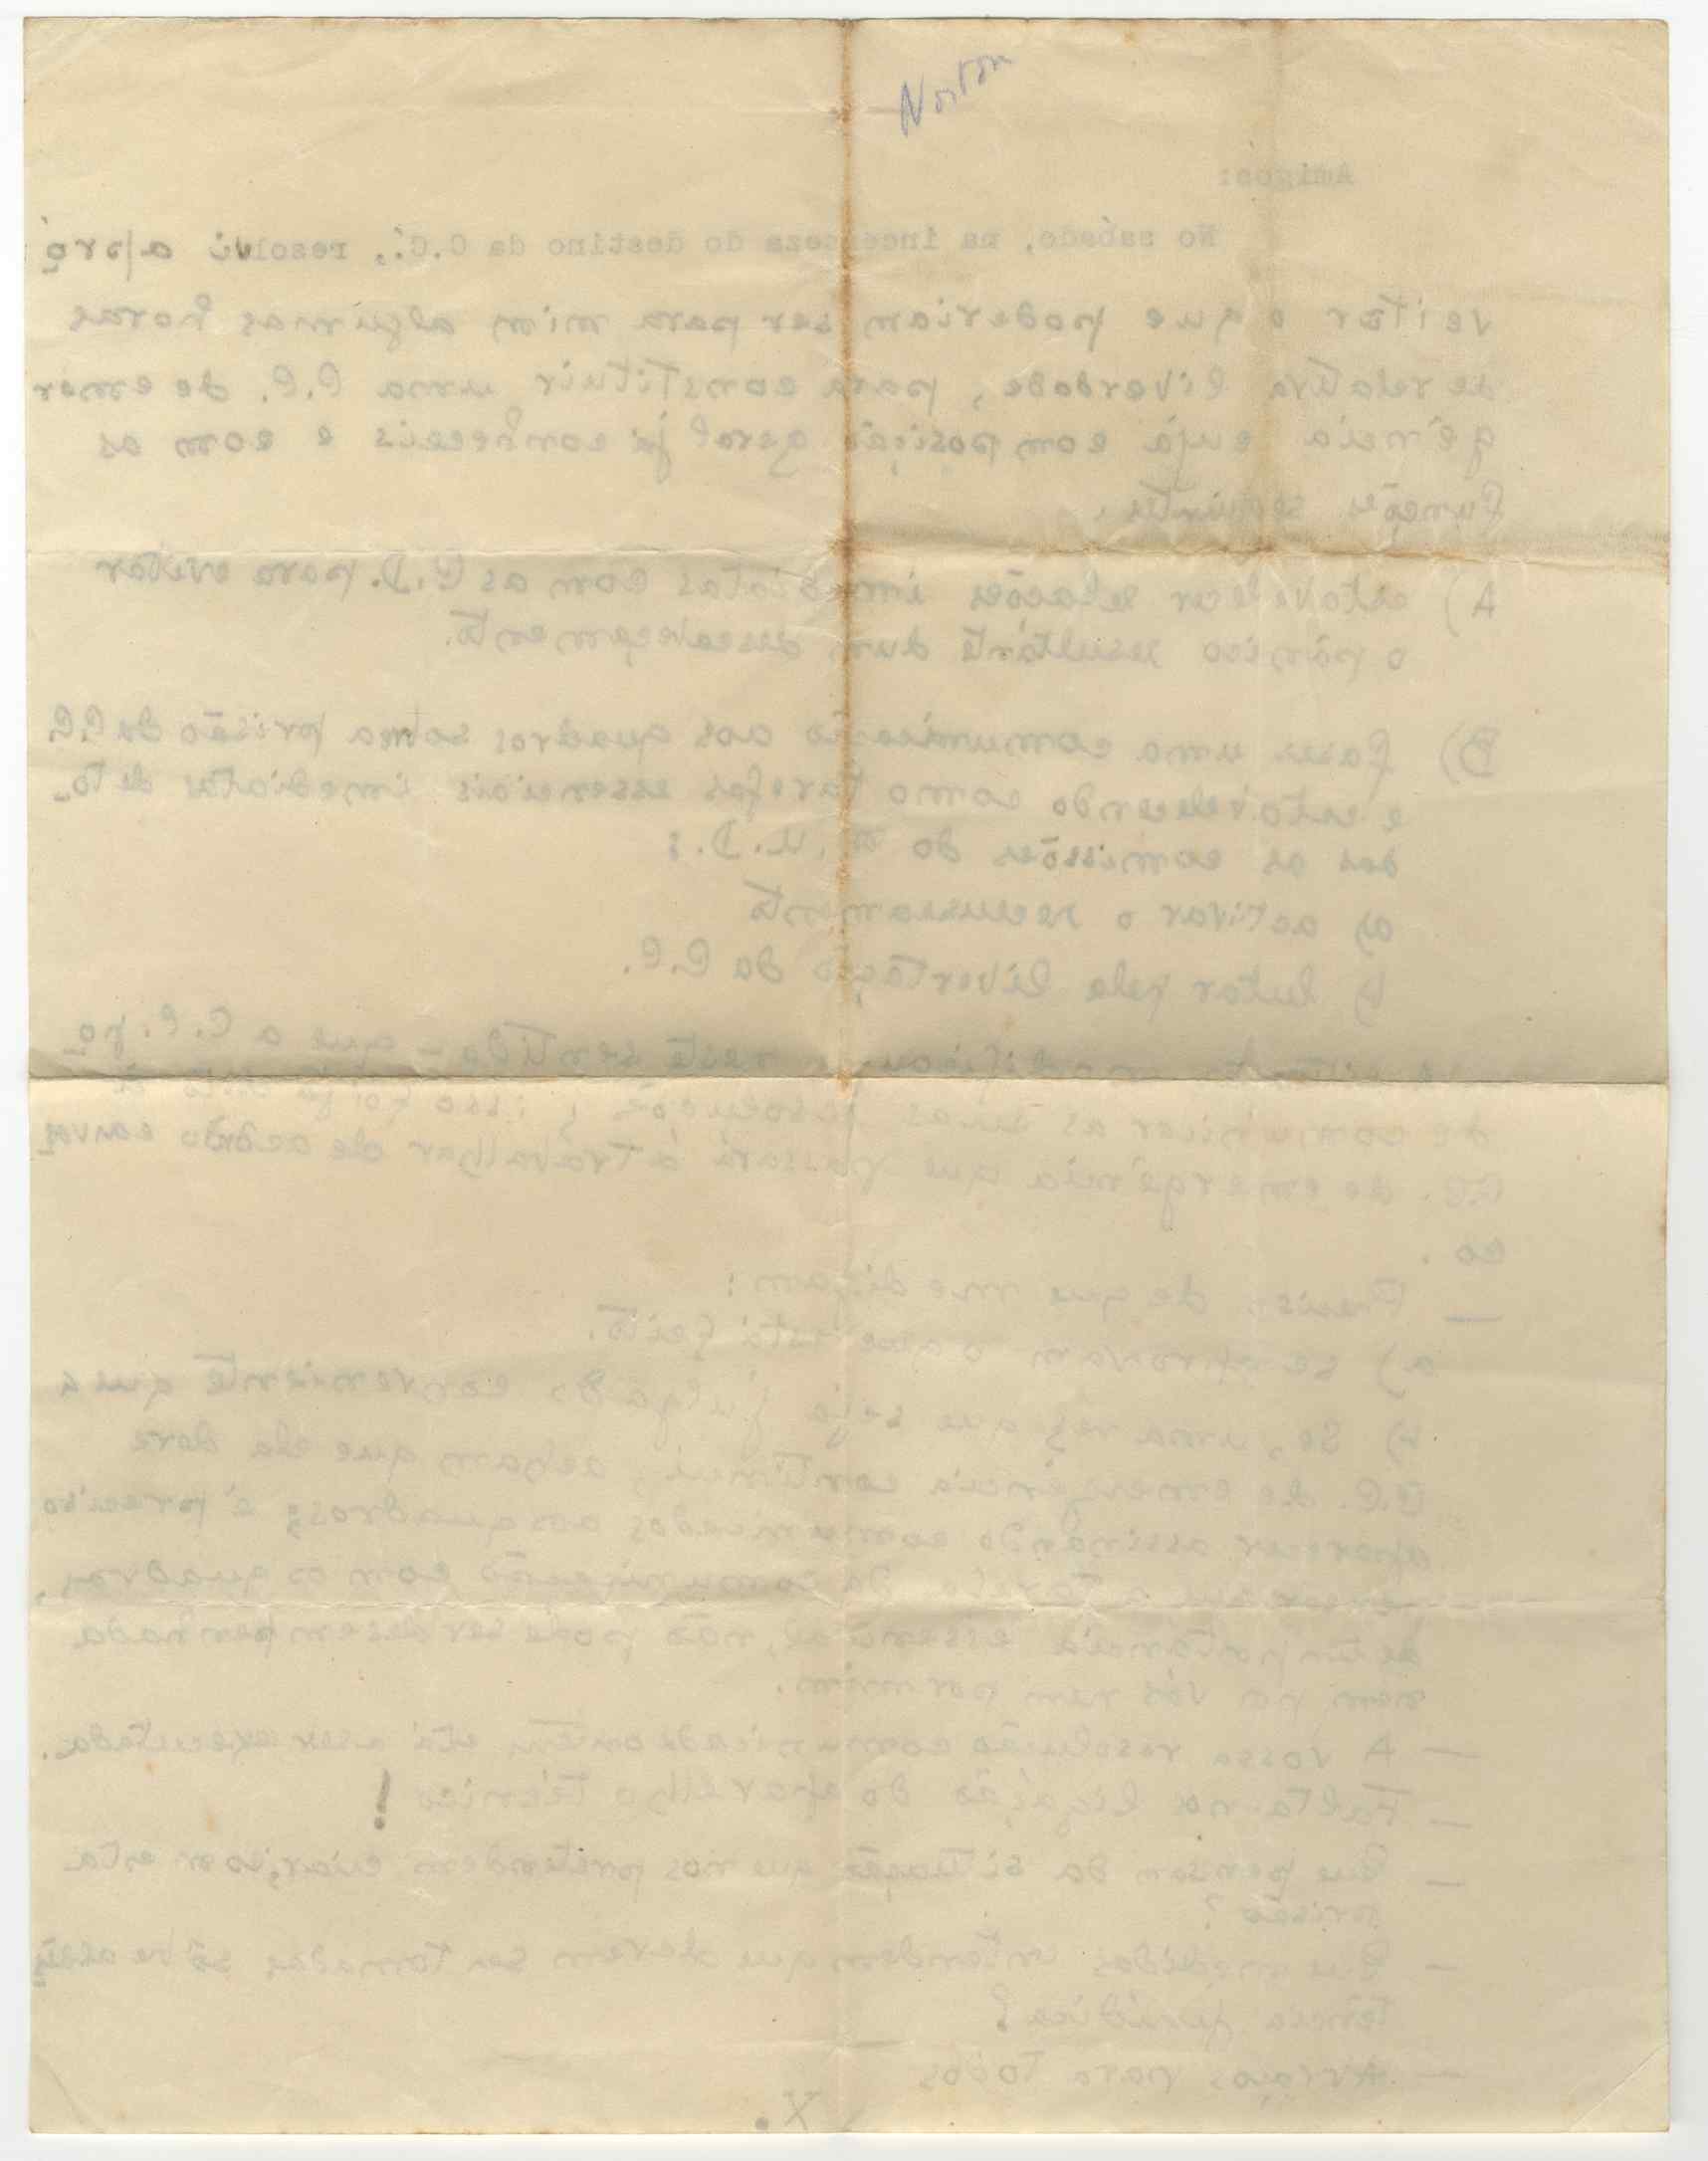 Norton
Amigos:
No sabado, na incerteza do destino da C.C., resolvi apro
veitar o que poderiam ser para mim algumas horas
de relativa liberdade, para constituir uma C.C. de emer
gência cuja composição geral já conheceis e com as
funções seguintes:
A) estabelecer relações imediatas com as C.D. para evitar
o pânico resultante dum descabeçamento.
B) fazer uma comunicação aos quadros sobre a prisão da C.C.
e estabelecendo como tarefas essenciais imediatas de to-
das as comissões do M.U.D.:
a) activar o recenseamento
b) lutar pela libertação da C.C.
neste sentido - que a C.C. po
de comunicar as suas resoluções, isso foi já dito à
C.C. de emergência que passará a trabalhar de acôrdo convos
co.
— Preciso de que me digam:
a) se aprovam o que está feito.
b) Se, uma vez que seja julgado conveniente que a
C.C. de emergência continui, acham que ela deve
aparecer assinando comunicados aos quadros; é preciso
a tarefa da comunicação com os quadros,
de importancia essencial, não pode ser desempenhada
nem por vós nem por mim.
— A vossa resolução comunicada ontem, está a ser executada.
— Falta-nos ligação do aparelho técnico!
— Que pensam da situação que nos pretendem criar, com esta
prisão?
— Que medidas entendem que devem ser tomadas sôbre assis
tência jurídica?
— Abraços para todos
X.